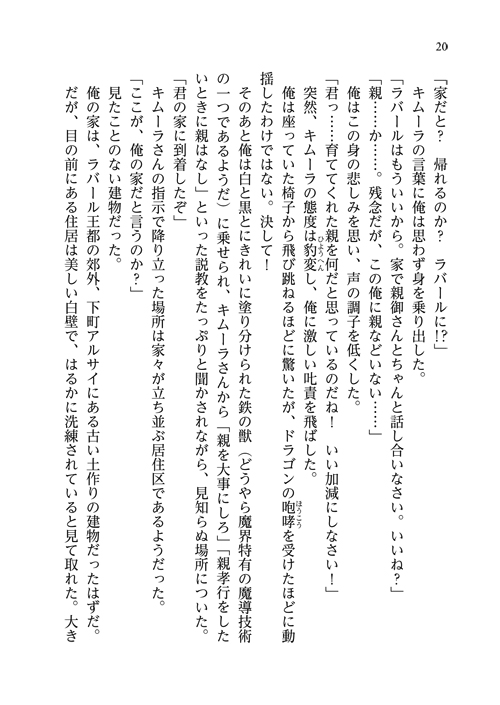 20
「家だと？　帰れるのか？　ラバールに!?」
キムーラの言葉に俺は思わず身を乗り出した。
「ラバールはもういいから。家で親御さんとちゃんと話し合いなさい。いいね？」
「親……か……。残念だが、この俺に親などいない……」
俺はこの身の悲しみを思い、声の調子を低くした。
「君っ……育ててくれた親を何だと思っているのだね！　いい加減にしなさい！」
突然、キムーラの態度は豹変し、俺に激しい叱責を飛ばした。
ひょうへん
俺は座っていた椅子から飛び跳ねるほどに驚いたが、ドラゴンの咆哮を受けたほどに動
ほうこう
揺したわけではない。決して！
そのあと俺は白と黒とにきれいに塗り分けられた鉄の獣（どうやら魔界特有の魔導技術
の一つであるようだ）に乗せられ、キムーラさんから「親を大事にしろ」「親孝行をした
いときに親はなし」といった説教をたっぷりと聞かされながら、見知らぬ場所についた。
「君の家に到着したぞ」
キムーラさんの指示で降り立った場所は家々が立ち並ぶ居住区であるようだった。
「ここが、俺の家だと言うのか？」
見たことのない建物だった。
俺の家は、ラバール王都の郊外、下町アルサイにある古い土作りの建物だったはずだ。
だが、目の前にある住居は美しい白壁で、はるかに洗練されていると見て取れた。大き